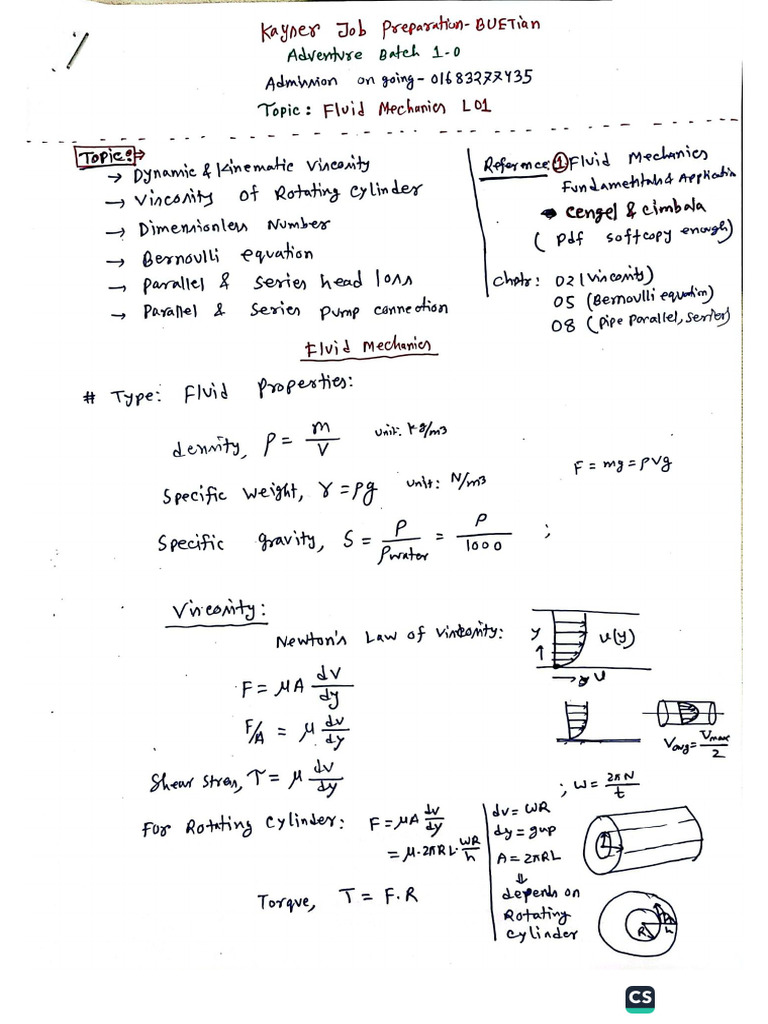 Kayner Job Preparation-BUETian
Adventure Batch 1-0
Admission on going-01683277435
Topic: Fluid Mechanics L01
Topic:
→ Dynamic & Kinematic Viscosity
→ Viscosity of Rotating Cylinder
→ Dimensionless Number
→ Bernoulli equation
→ Parallel & series head loss
→ Parallel & Series pump connection
Reference: ① Fluid Mechanics
Fundamentals & Application
cengel & cimbala
(pdf softcopy enough)
Chptr: 02 (Viscosity)
05 (Bernoulli equation)
08 (Pipe Parallel, series)
Fluid Mechanics
# Type: Fluid Properties:
density, ρ = m/V unit: kg/m3
Specific Weight, γ = ρg unit: N/m3
F = mg = ρVg
Specific gravity, S = ρ/ρwater = ρ/1000 ;
Viscosity:
Newton's Law of Viscosity:
y u(y)
U
F = μA dv/dy
F/A = μ dv/dy
Vavg = Vmax/2
Shear Stress, τ = μ dv/dy
; W = 2πN/t
For Rotating Cylinder: F = μA dv/dy
= μ·2πRL·WR/h
dv = WR
dy = gap
A = 2πRL
⇓
depends on
Rotating
cylinder
Torque, T = F.R
R h
CS